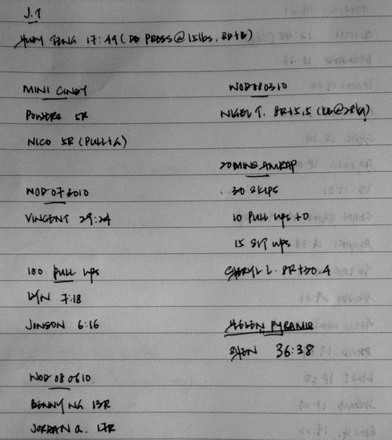 J.T
17:44 (DB PRESS @ 15lbs,
MINI CINDY
POWERS 5R
NICO 5R (PULL+
WOD 073010
VINCENT 29:24
100 PULL UPS
LYN 7:18
JONSON 6:16
WOD 080610
BENNY NG 13R
JORDAN O. 17R
WOD 080310
NIGEL T. 8R+5.5
20 MINS AMRAP
30 SKIPS
10 PULL UPS
15 SIT UPS
CHERYL L. 8R+30.4
HELEN PYRAMID
SHEN 36:38